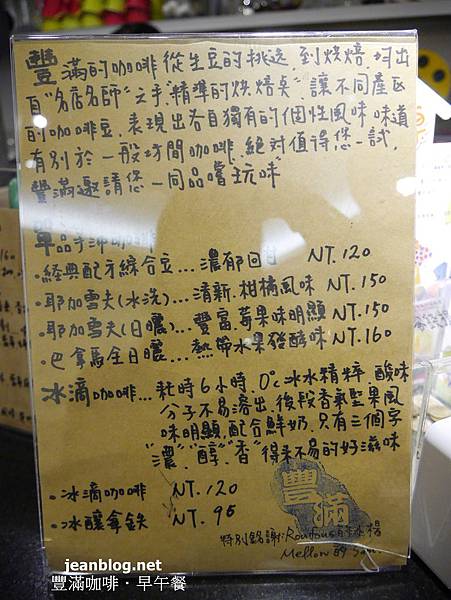 豐滿的咖啡從生豆的挑選,到烘焙,均出
自"名店名師"之手.精準的烘焙點",讓不同產區
的咖啡豆,表現出各自獨有的個性風味,味道
有別於一般坊間咖啡,絕對值得您一試,
豐滿邀請您一同品嚐玩味
單品手沖咖啡
·經典配方綜合豆...濃郁回甘 NT.120
·耶加雪夫(水洗)...清新.柑橘風味 NT.150
·耶加雪夫(日曬)...豐富莓果味明顯 NT.150
·巴拿馬全日曬...熱帶水果發酵味 NT.160
冰滴咖啡...耗時6小時.0°c冰水精粹 酸味
分子不易溶出,後段香氣堅果風
味明顯.配合鮮奶.只有三個字
"濃"."醇"."香"得來不易的好滋味
·冰滴咖啡 NT.120
·冰釀拿鉄 NT.95
豐滿
特別銘謝:
Mellow的
jeanblog.net
豐滿咖啡·早午餐